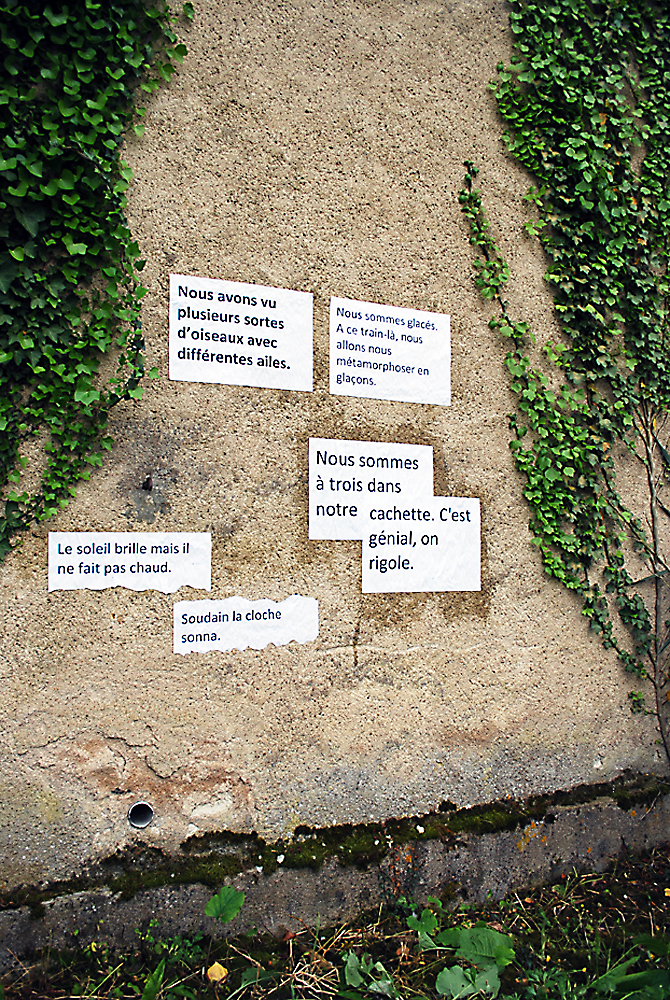 Nous avons vu
plusieurs sortes
d'oiseaux avec
différentes ailes.
Nous sommes glacés.
A ce train-là, nous
allons nous
métamorphoser en
glaçons.
Nous sommes
à trois dans
notre cachette. C'est
génial, on
rigole.
Le soleil brille mais il
ne fait pas chaud.
Soudain la cloche
sonna.